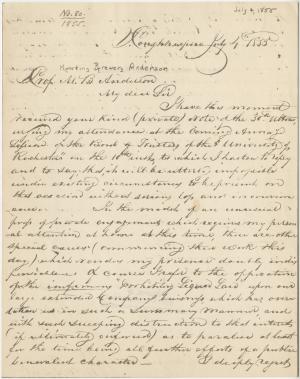 July 4, 1855
No. 80.
1855.
Poughkeepsie July 4th 1855
Martin Brewer Anderson
Prof. M. B. Anderson
My dear Sir
I have this moment
received your kind (private) Note of the 30th Ultimo
urging my attendance at the Coming Annual
Session of the Board of Trustees of the University of
Rochester on the 10th inst, to which I hasten to reply
and to say that it will be utterly impossible
under existing circumstances to be present on
that occasion without serious loss and inconveni-
ence. In the midst of an unusual
of private engagements and requiring my person-
al attention at home at this time, there are other
special causes (commencing this work this
day) which renders my presence doubly indis-
pensible. I of course refer to the operation
of the infamous Prohibitory Liquor Law upon our
large extended Company which has over-
taken us in such a Summary manner, and
with such sweeping destruction to that interest
(if ultimately enforced) as to paralise at least
for the time being all further efforts of a public
benevolent character — I deeply regret